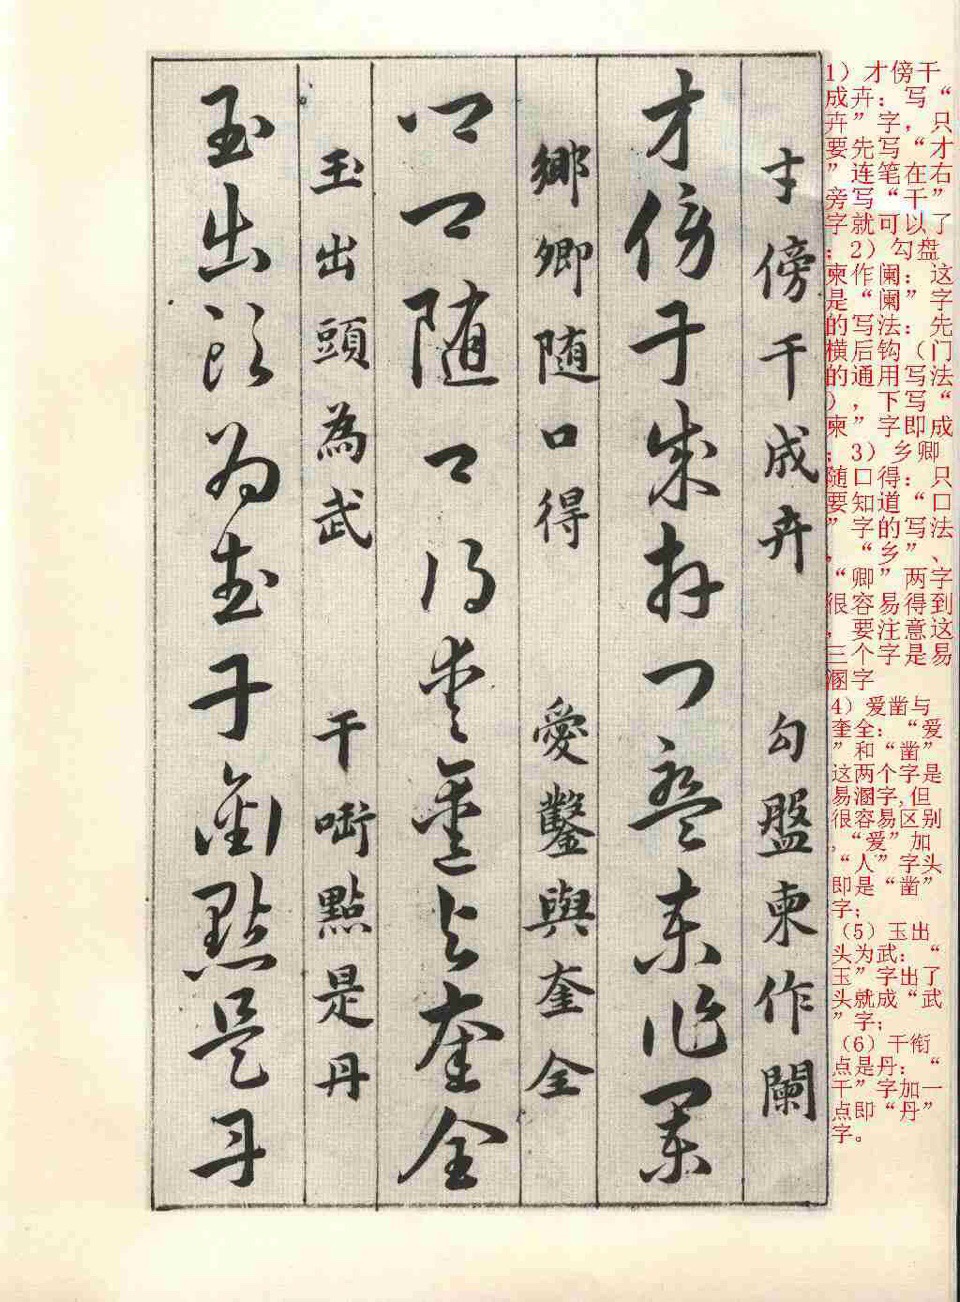 1）才傍干
成卉：写“
卉”字，只
要先写“才
”连笔在右
旁写“干”
字就可以了
；2）勾盘
柬作阑：这
是“阑”字
的写法：先
横后钩（门
的通用写法
），下写“
柬”字即成
；3）乡卿
随口得：只
要知道“口
”字的写法
，“乡”、
“卿”两字
很容易得到
，要注意这
三个字是易
溷字
4）爱凿与
奎全：“爱
”和“凿”
这两个字是
易溷字,但
很容易区别
,“爱”加
“人”字头
即是“凿”
字;
（5）玉出
头为武：“
玉”字出了
头就成“武
”字;
（6）干衔
点是丹：“
干”字加一
点即“丹”
字。
才傍干成卉 勾盤柬作闌
才傍干成卉勾盤柬作闌
鄉卿随口得 愛鑿與奎全
鄉卿随口得愛鑿与奎全
玉出頭為武 干啣點是丹
玉出頭為武干銜點是丹